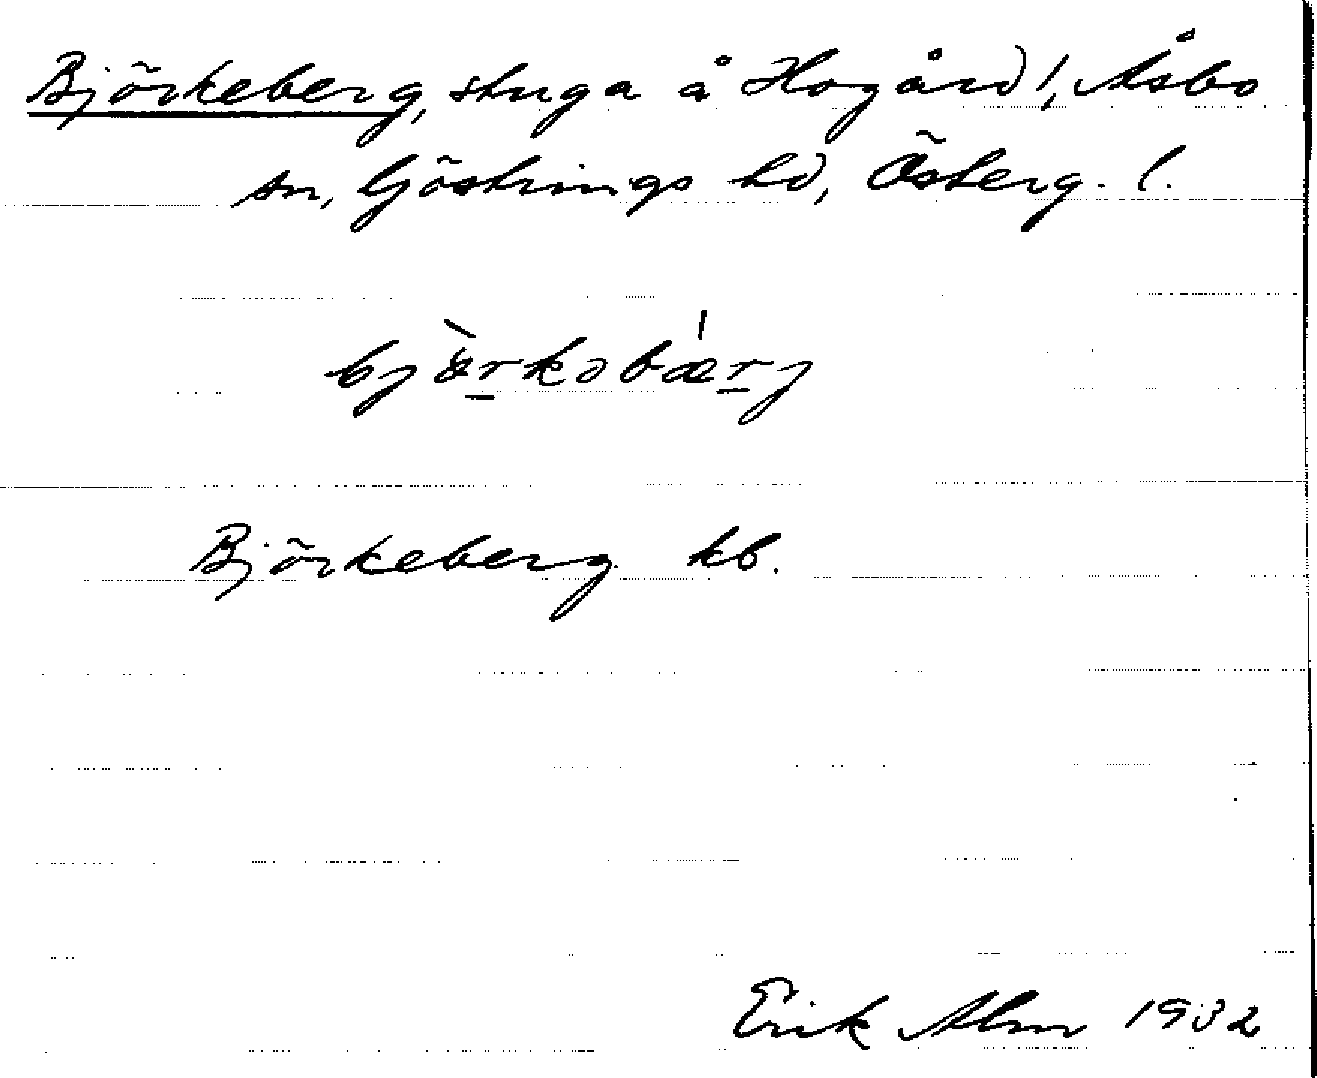 Björkeberg, stuga å Hogård!, Åsbo
sn, Göstrings hd, Österg. l.
bjö̀rkəbæ̍rj
Björkeberg kb.
Erik Alm 1932